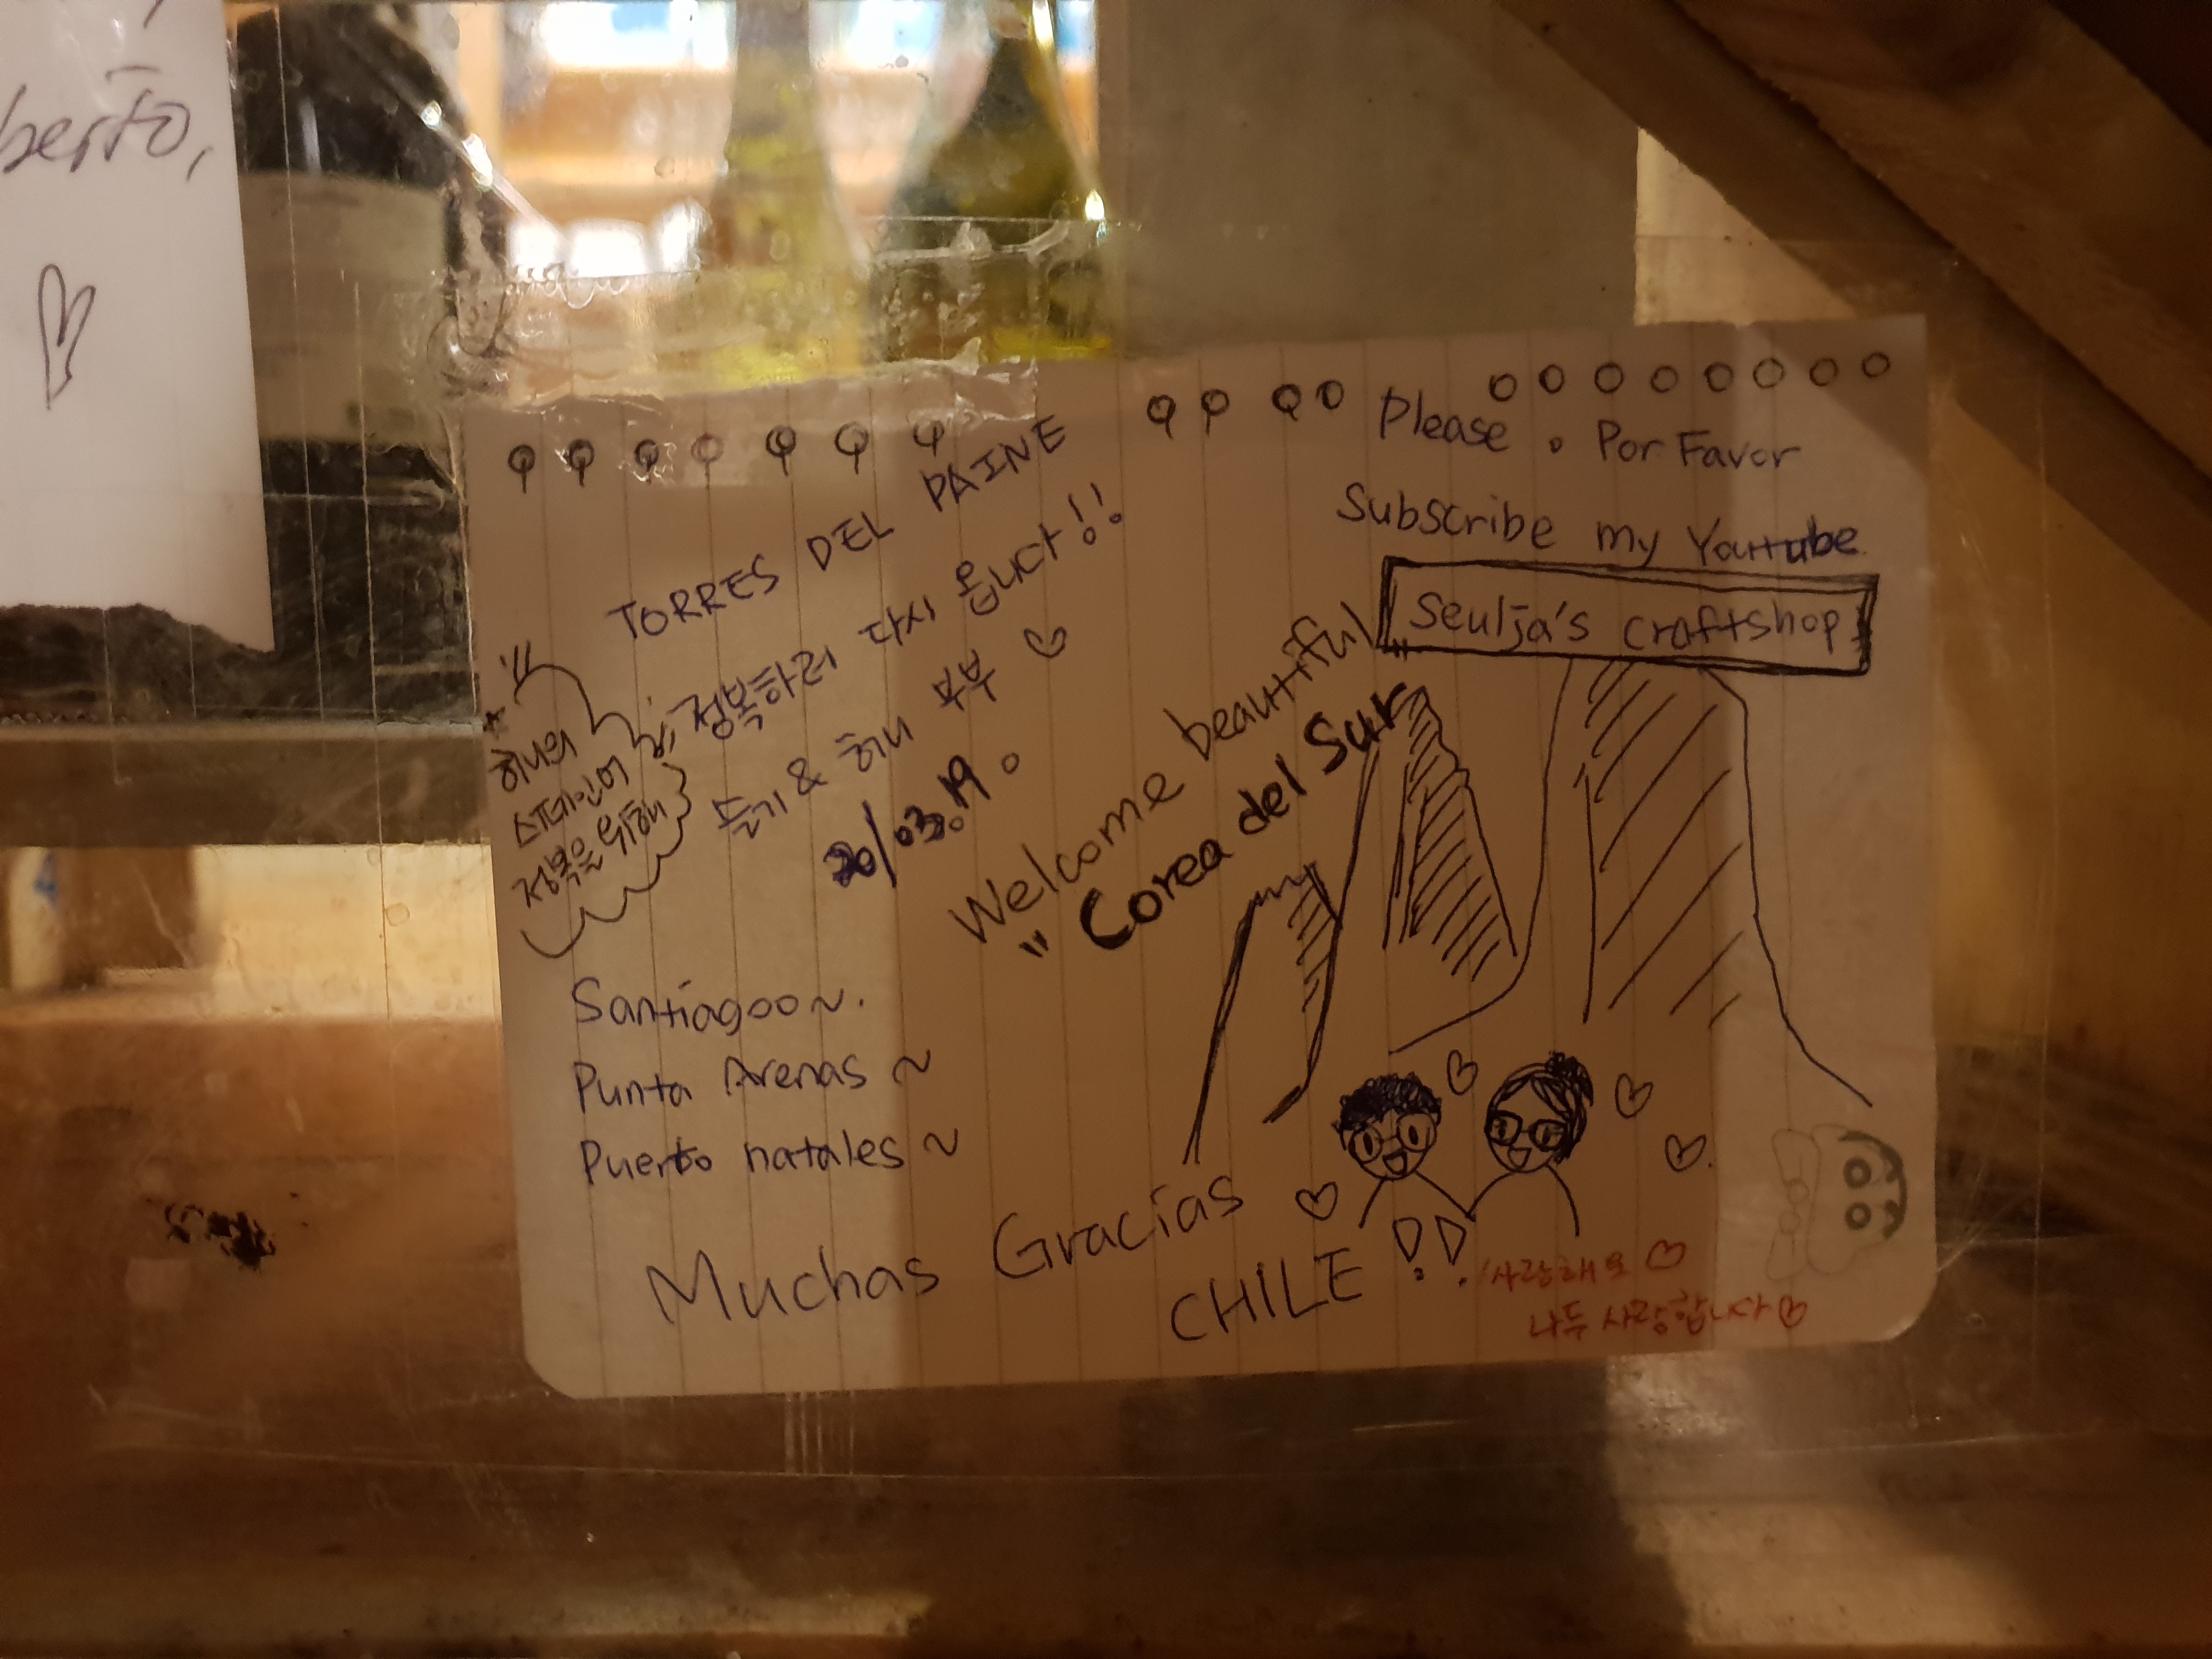 berto,
TORRES DEL PAINE
정복하러 다시 옵니다!!
들기 & 허니 부부 ♡
20/.03.19.
허니의
스페인어
정복을 위해
Please . Por Favor
Subscribe my Youtube
Seulja's craftshop
Welcome beautiful
"Corea del Sur"
Santiagoo~.
Punta Arenas ~
Puerto natales ~
Muchas Gracias
CHILE !!
사랑해요 ♡
나두 사랑합니다 ♡